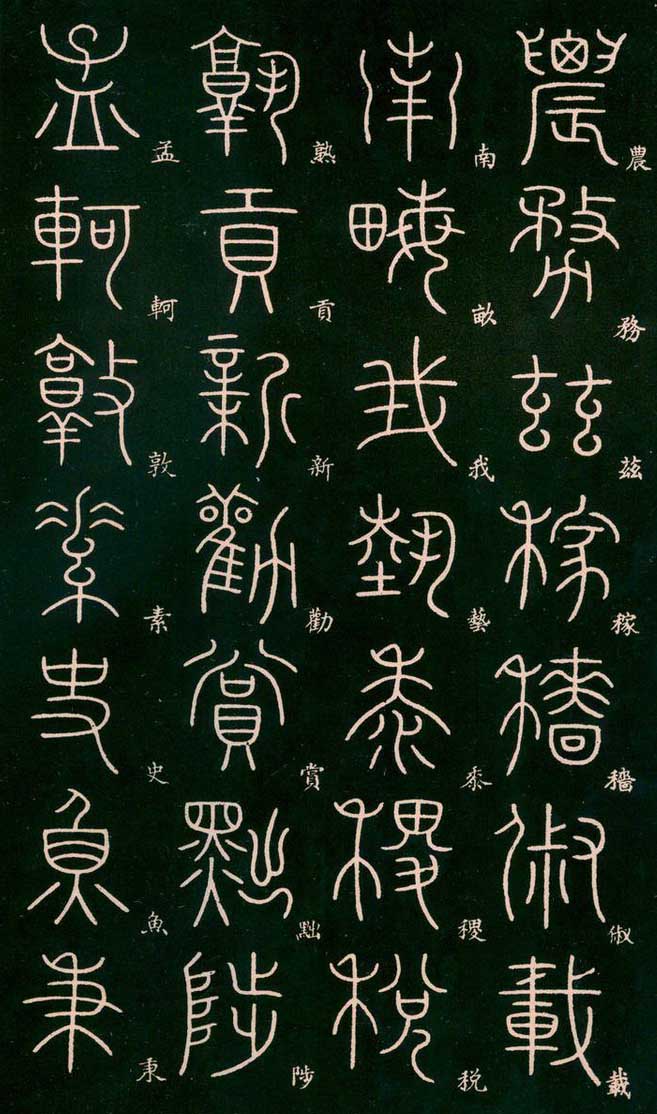 農務茲稼穡俶載
南畝我藝黍稷税
熟貢新勸賞黜陟
孟軻敦素史魚秉